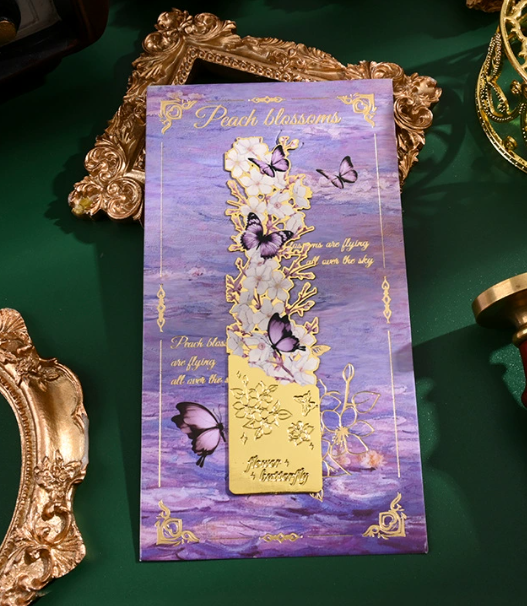 Peach blossoms
are flying
all over the sky
Peach
are flying
all over the
flower
butterfly